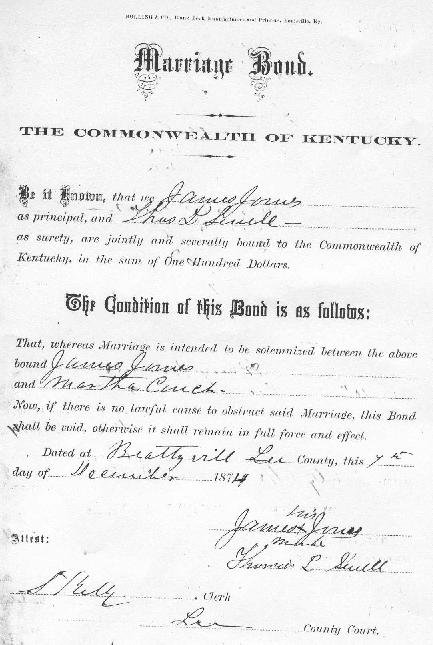 Marriage Bond.
THE COMMONWEALTH OF KENTUCKY.
Be it Known, that we James Jones
as principal, and Thos P Sewell
as surety, are jointly and severally bound to the Commonwealth of
Kentucky, in the sum of One Hundred Dollars.
The Condition of this Bond is as follows:
That, whereas Marriage is intended to be solemnized between the above
bound James Jones
and Martha Couch
Now, if there is no lawful cause to obstruct said Marriage, this Bond
shall be void, otherwise it shall remain in full force and effect.
Dated at Beattyvill Lee County, this 7th
day of December 1874
his
James + Jones
mark
Attest:
Thomas P Sewell
Kelly Clerk
Lee County Court.